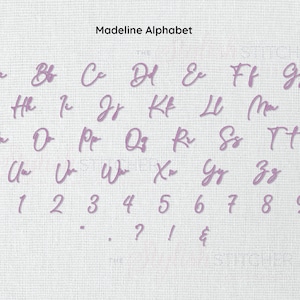 Madeline Alphabet
THE
STITCHER
Bb Cc Dd Ee Ff
Hh Ii Jj Kk Ll Mm
Oo Pp Qq Rr Ss Tt
Uu Vv Ww Xx Yy Zz
STITCHER
1 2 3 4 5 6 7 8 9
" . ? ! &
THE
STITCHER